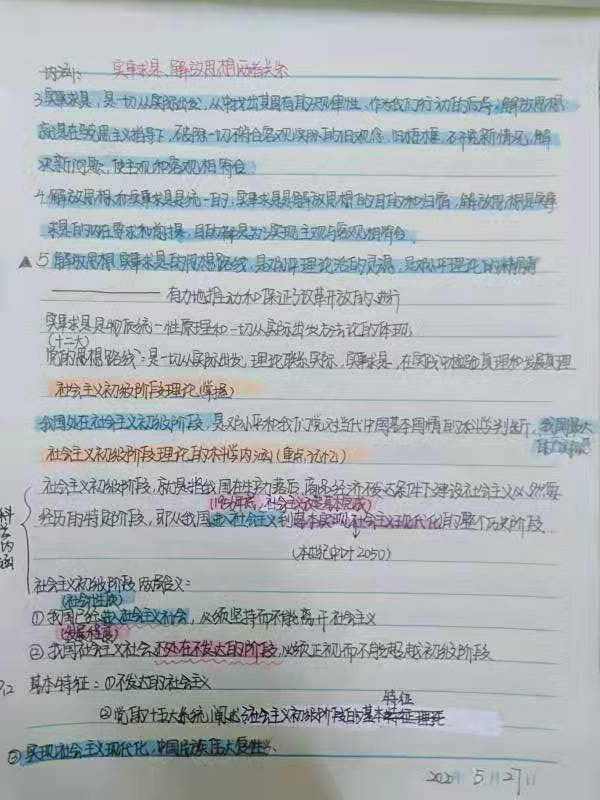 内涵: 实事求是、解放思想两者关系
3.实事求是,是一切从实际出发,从中找出其固有其规律性,作为我们行动的向导,解放思想
就是在马克思主义指导下,破除一切不符合客观实际的旧观念,旧框框,不断研究新情况,解
决新问题,使主观和客观相符合
4.解放思想和实事求是是统一的,实事求是是解放思想的目的和归宿,解放思想是实事
求是的内在要求和前提,目的都是为了实现主观与客观相符合。
▲5.解放思想,实事求是的思想路线,是邓小平理论的灵魂,是邓小平理论的精髓
——— 有力地推动和保证了改革开放的进行
实事求是是物质统一性原理和一切从实际出发方法论的体现;
(十二大)
党的思想路线:是一切从实际出发,理论联系实际,实事求是,在实践中检验真理和发展真理
社会主义初级阶段理论(掌握)
我国处在社会主义初级阶段,是邓小平和我们党对当代中国基本国情的科学判断,我国最大
社会主义初级阶段理论的科学内涵(重点)
社会主义初级阶段,就是指我国在生产力落后,商品经济不发达条件下建设社会主义必然要
经历的特定阶段,即从我国进入社会主义到基本实现社会主义现代化的整个历史阶段...
(本世纪中叶2050)
科学内涵
社会主义初级阶段两层含义:
(社会性质)
①我国已经进入社会主义社会,必须坚持而不能离开社会主义
(发展程度)
②我国社会主义社会还处在不发达的阶段,必须正视而不能超越初级阶段
基本特征:①不发达的社会主义
特征
②党的十五大系统阐述了社会主义初级阶段的基本
③实现社会主义现代化,中国民族伟大复兴
2020 5 27